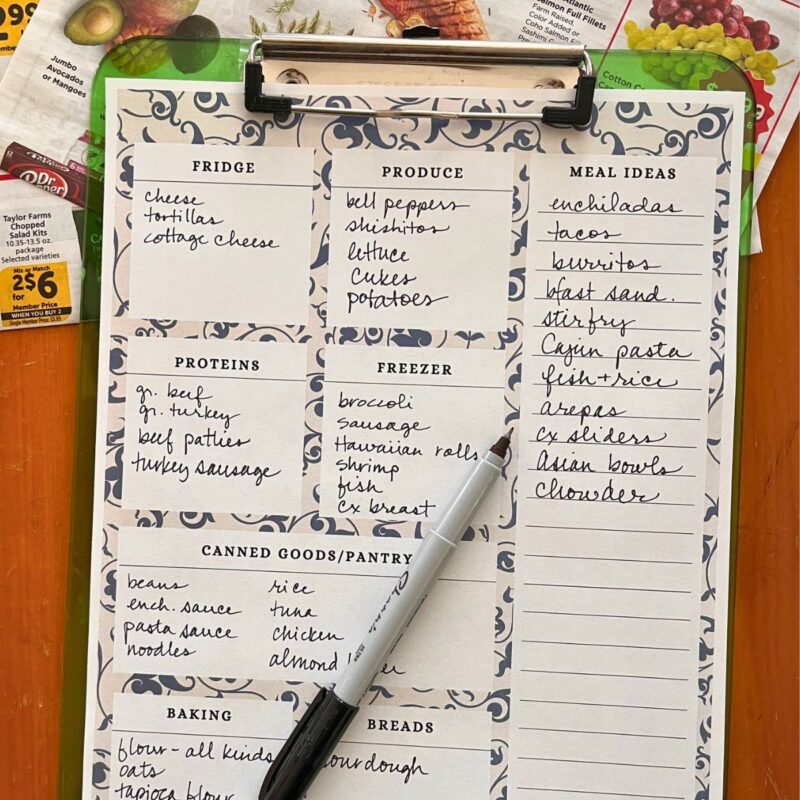 .99
Member Price
Jumbo
Avocados
or Mangoes
Salmon Full Fillets
Farm Raised,
Color Added or
Coho Salmon
Sashimi
Cotton
Dr Pepper
Taylor Farms
Chopped
Salad Kits
10.35-13.5 oz.
package
Selected varieties
Mix or Match
2$6
for
Member Price
WHEN YOU BUY 2
FRIDGE
cheese
tortillas
cottage cheese
PRODUCE
bell peppers
shishitos
lettuce
Cukes
potatoes
MEAL IDEAS
enchiladas
tacos
burritos
bfast sand.
stirfry
Cajun pasta
fish+rice
arepas
cx sliders
Asian bowls
chowder
PROTEINS
gr. beef
gr. turkey
beef patties
turkey sausage
FREEZER
broccoli
sausage
Hawaiian rolls
shrimp
fish
cx breast
CANNED GOODS/PANTRY
beans
ench. sauce
pasta sauce
noodles
rice
tuna
chicken
almond
Sharpie
BAKING
flour - all kinds
oats
tapioca flour
BREADS
sourdough